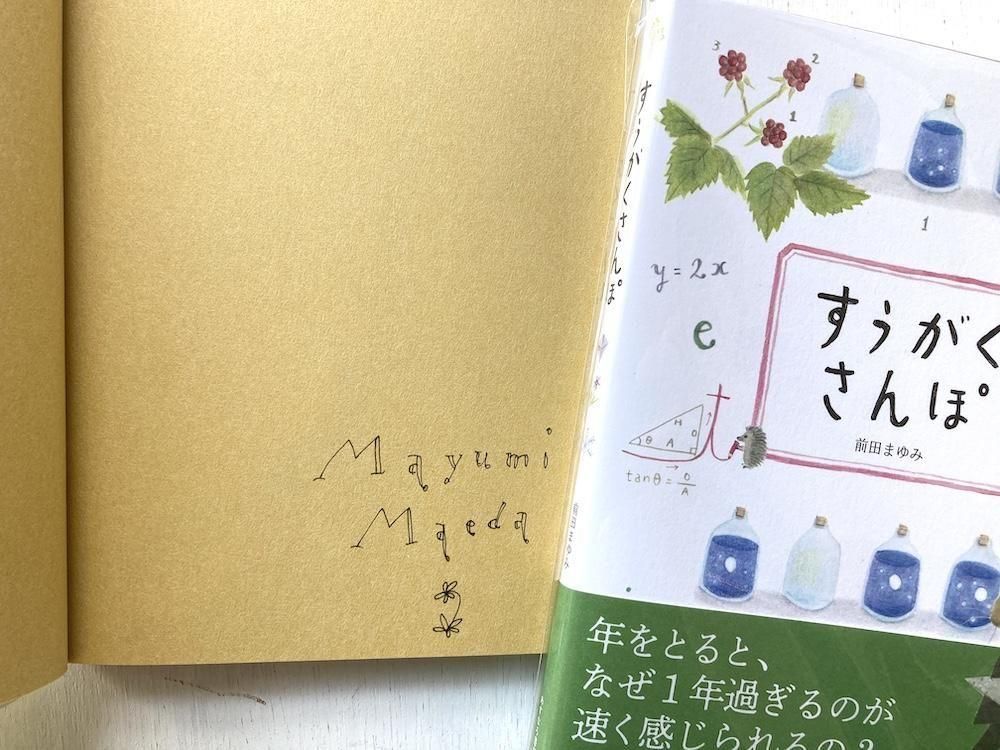 Mayumi
Maeda
すうがくさんぽ
前田まゆみ
3
2
1
1
y = 2x
e
t
H
O
θ
A
tanθ = O/A
すうがく
さんぽ
前田まゆみ
年をとると、
なぜ1年過ぎるのが
速く感じられるの?